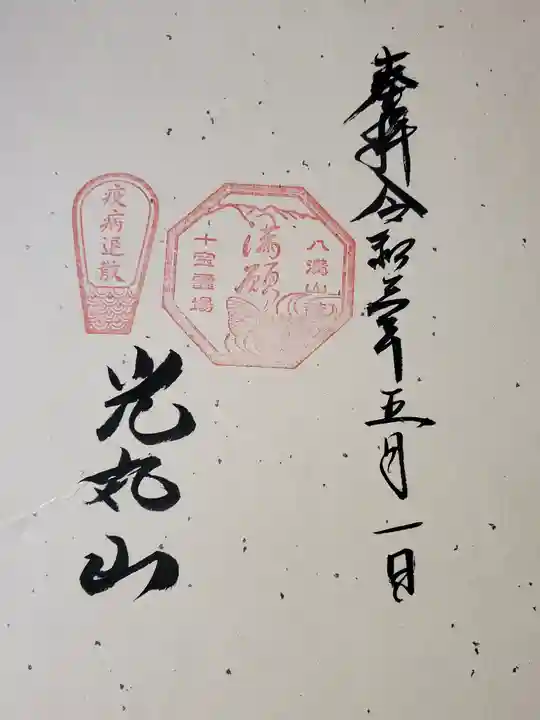 奉拝令和三年五月一日
八溝山
満願
十宝霊場
疫病退散
光丸山